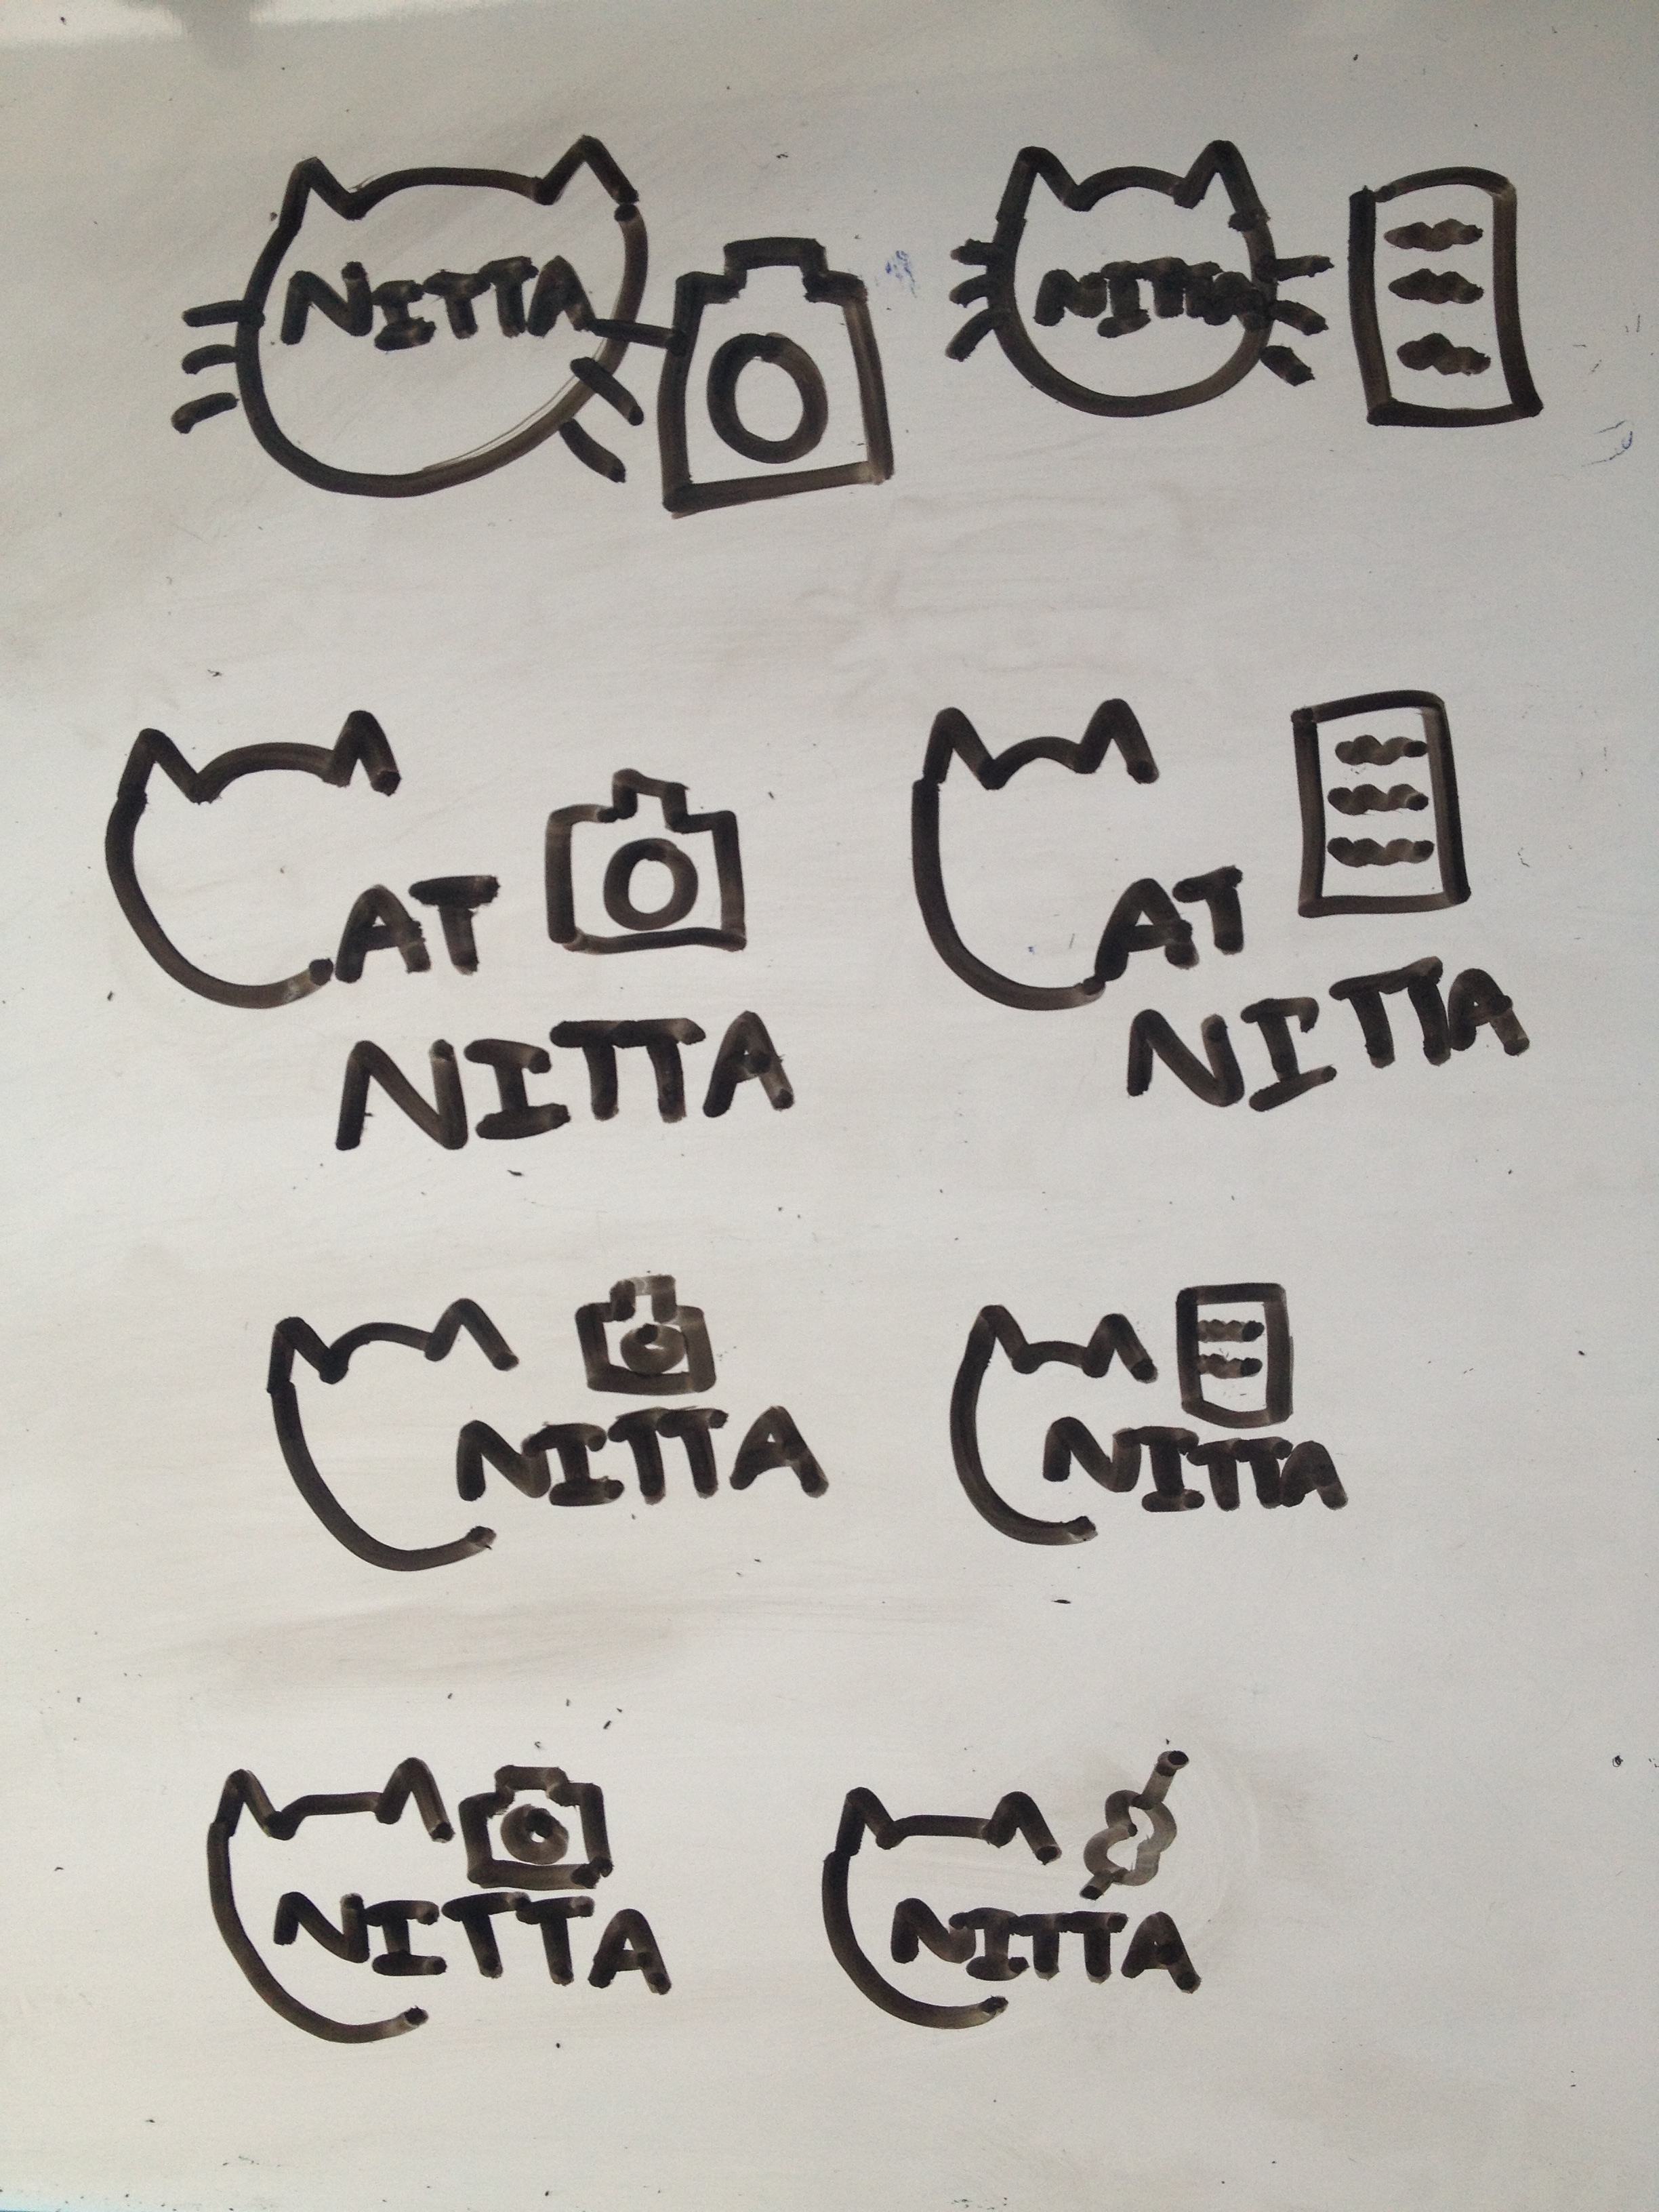 NITTA
NITTA
CAT
NITTA
CAT
NITTA
NITTA
NITTA
NITTA
NITTA